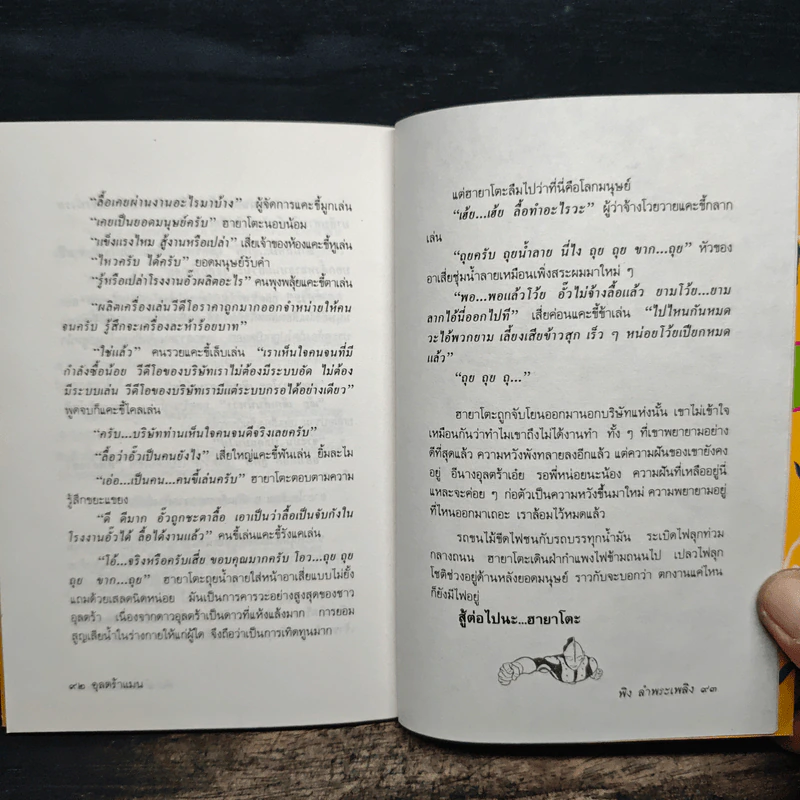 “ลื้อเคยผ่านงานอะไรมาบ้าง” ผู้จัดการแคะขี้มูกเล่น
“เคยเป็นยอดมนุษย์ครับ” ฮายาโตะนอบน้อม
“แข็งแรงไหม สู้งานหรือเปล่า” เสี่ยเจ้าของห้องแคะขี้หูเล่น
“ไหวครับ ได้ครับ” ยอดมนุษย์รับคำ
“รู้หรือเปล่าโรงงานอั๊วผลิตอะไร” คนพุงพลุ้ยแคะขี้ตาเล่น
“ผลิตเครื่องเล่นวีดีโอราคาถูกมากออกจำหน่ายให้คน
จนครับ รู้สึกจะเครื่องละห้าร้อยบาท”
“ใช่แล้ว” คนรวยแคะขี้เล็บเล่น “เราเห็นใจคนจนที่มี
กำลังซื้อน้อย วีดีโอของบริษัทเราไม่ต้องมีระบบอัด ไม่ต้อง
มีระบบเล่น วีดีโอของบริษัทเรามีแต่ระบบกรอได้อย่างเดียว”
พูดจบก็แคะขี้ไคลเล่น
“ครับ...บริษัทท่านเห็นใจคนจนดีจริงเลยครับ”
“ลื้อว่าอั๊วเป็นคนยังไง” เสี่ยใหญ่แคะขี้ฟันเล่น ยิ้มละไม
“เอ่อ...เป็นคน...คนขี้เล่นครับ” ฮายาโตะตอบตามความ
รู้สึกขยะแขยง
“ดี ดีมาก อั๊วถูกชะตาลื้อ เอาเป็นว่าลื้อเป็นจับกังใน
โรงงานอั๊วได้ ลื้อได้งานแล้ว” คนขี้เล่นแคะขี้รังแคเล่น
“โอ้...จริงหรือครับเสี่ย ขอบคุณมากครับ โอว...ถุย ถุย
ถุย ขาก...ถุย” ฮายาโตะถุยน้ำลายใส่หน้าอาเสี่ยแบบไม่ยั้ง
แถมด้วยเสลดนิดหน่อย มันเป็นการคารวะอย่างสูงสุดของชาว
อุลตร้า เนื่องจากดาวอุลตร้าเป็นดาวที่แห้งแล้งมาก การยอม
สูญเสียน้ำในร่างกายให้แก่ผู้ใด จึงถือว่าเป็นการเทิดทูนมาก
๙๒ อุลตร้าแมน
แต่ฮายาโตะลืมไปว่าที่นี่คือโลกมนุษย์
“เฮ้ย...เฮ้ย ลื้อทำอะไรวะ” ผู้ว่าจ้างโวยวายแคะขี้กลาก
เล่น
“ถุยครับ ถุยน้ำลาย นี่ไง ถุย ถุย ขาก...ถุย” หัวของ
อาเสี่ยชุ่มน้ำลายเหมือนเพิ่งสระผมมาใหม่ ๆ
“พอ...พอแล้วโว้ย อั๊วไม่จ้างลื้อแล้ว ยามโว้ย...ยาม
ลากไอ้นี่ออกไปที” เสี่ยค่อนแคะขี้ข้าเล่น “ไปไหนกันหมด
วะไอ้พวกยาม เลี้ยงเสียข้าวสุก เร็ว ๆ หน่อยโว้ยเปียกหมด
แล้ว”
“ถุย ถุย ถุ...”
ฮายาโตะถูกจับโยนออกมานอกบริษัทแห่งนั้น เขาไม่เข้าใจ
เหมือนกันว่าทำไมเขาถึงไม่ได้งานทำ ทั้ง ๆ ที่เขาพยายามอย่าง
ดีที่สุดแล้ว ความหวังพังทลายลงอีกแล้ว แต่ความฝันของเขายังคง
อยู่ อีนางอุลตร้าเอ๋ย รอพี่หน่อยนะน้อง ความฝันที่เหลืออยู่นี่
แหละจะค่อย ๆ ก่อตัวเป็นความหวังขึ้นมาใหม่ ความพยายามอยู่
ที่ไหนออกมาเถอะ เราล้อมไว้หมดแล้ว
รถขนไม้ขีดไฟชนกับรถบรรทุกน้ำมัน ระเบิดไฟลุกท่วม
กลางถนน ฮายาโตะเดินฝ่ากำแพงไฟข้ามถนนไป เปลวไฟลุก
โชติช่วงอยู่ด้านหลังยอดมนุษย์ ราวกับจะบอกว่า ตกงานแค่ไหน
ก็ยังมีไฟอยู่
สู้ต่อไปนะ...ฮายาโตะ
พิง ลำพระเพลิง ๙๓